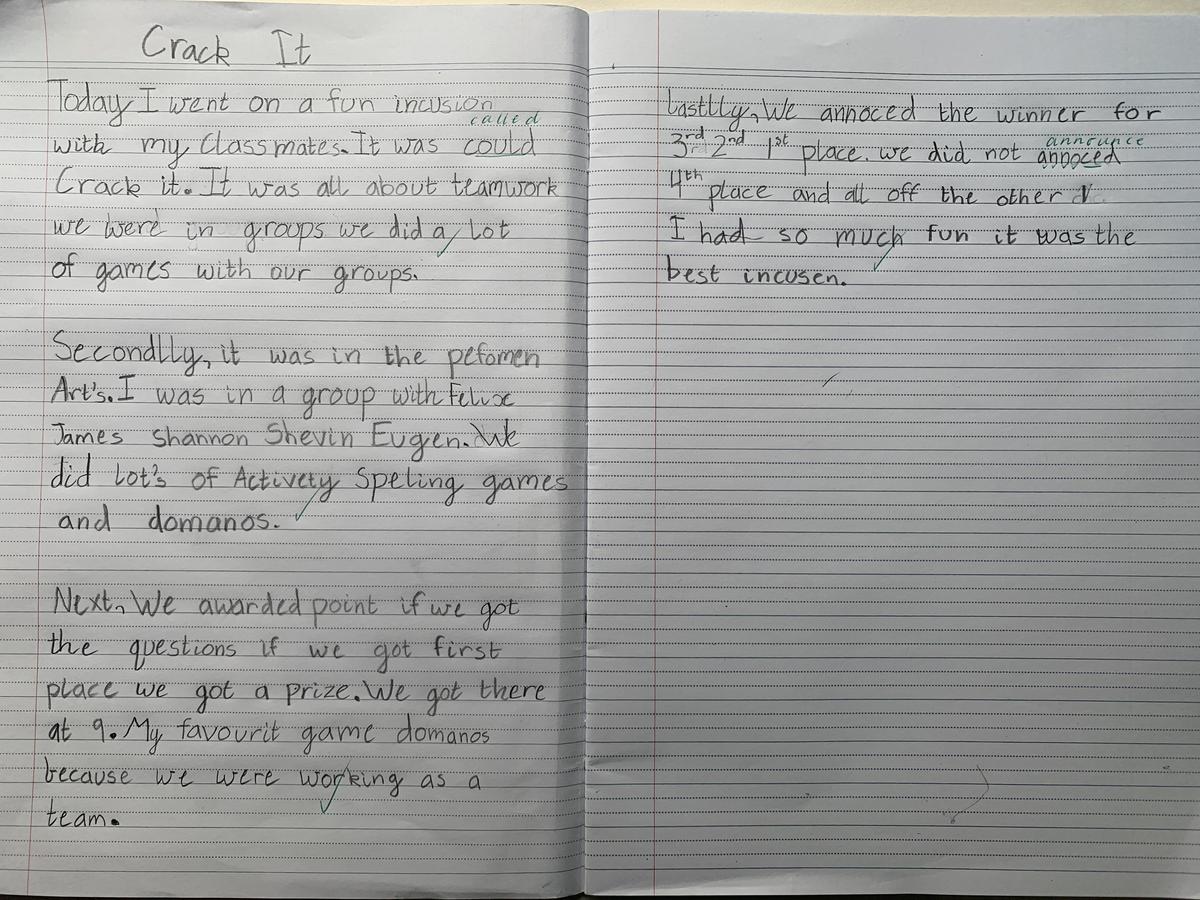 Crack It
Today I went on a fun incusion
called
with my Classmates. It was could
Crack it. It was all about teamwork
we were in groups we did a Lot
of games with our groups.
Secondlly, it was in the pefomen
Art's. I was in a group with Felixe
James Shannon Shevin Eugen. We
did Lot's of Activety Speling games
and domanos.
Next, We awarded point if we got
the questions if we got first
place we got a prize. We got there
at 9. My favourit game domanos
because we were working as a
team.
Lasttly, We annoced the winner for
announce
3rd 2nd 1st place. we did not annoced
4th place and all off the other
I had so much fun it was the
best incusen.